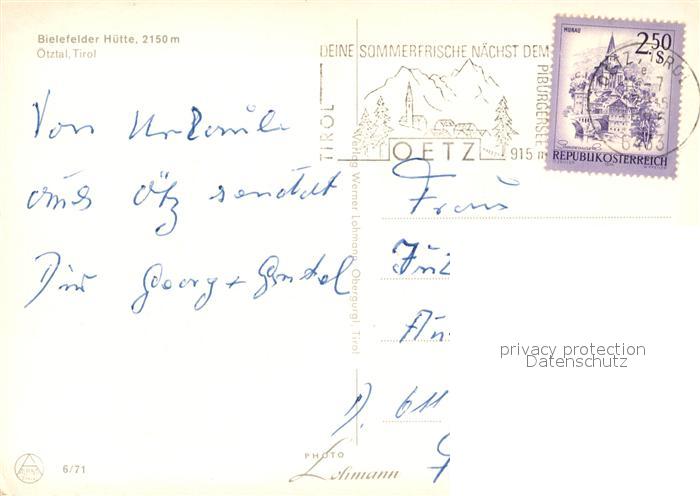 Bielefelder Hütte, 2150 m
Ötztal, Tirol
DEINE SOMMERFRISCHE NÄCHST DEM
PIBURGERSEE
TIROL
OETZ
915 m
MURAU
2.50
S
REPUBLIK ÖSTERREICH
6433
Von
aus Ötz sendet
Georg +
Frau
D. 611
Verlag Werner Lohmann, Obergurgl, Tirol
privacy protection
Datenschutz
PHOTO
Lohmann
6/71